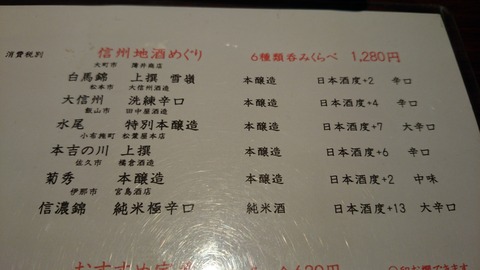 消費税別 信州地酒めぐり 6種類呑みくらべ 1,280円
大町市 薄井商店
白馬錦 上撰 雪嶺 本醸造 日本酒度+2 辛口
松本市 大信州酒造
大信州 洗練辛口 本醸造 日本酒度+4 辛口
飯山市 田中屋酒造
水尾 特別本醸造 本醸造 日本酒度+7 大辛口
小布施町 松葉屋本店
本吉の川 上撰 本醸造 日本酒度+6 辛口
佐久市 橘倉酒造
菊秀 本醸造 本醸造 日本酒度+2 中味
伊那市 宮島酒店
信濃錦 純米極辛口 純米酒 日本酒度+13 大辛口